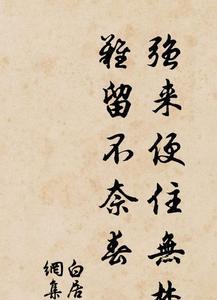 強来便住無
難留不奈春
白居
網集